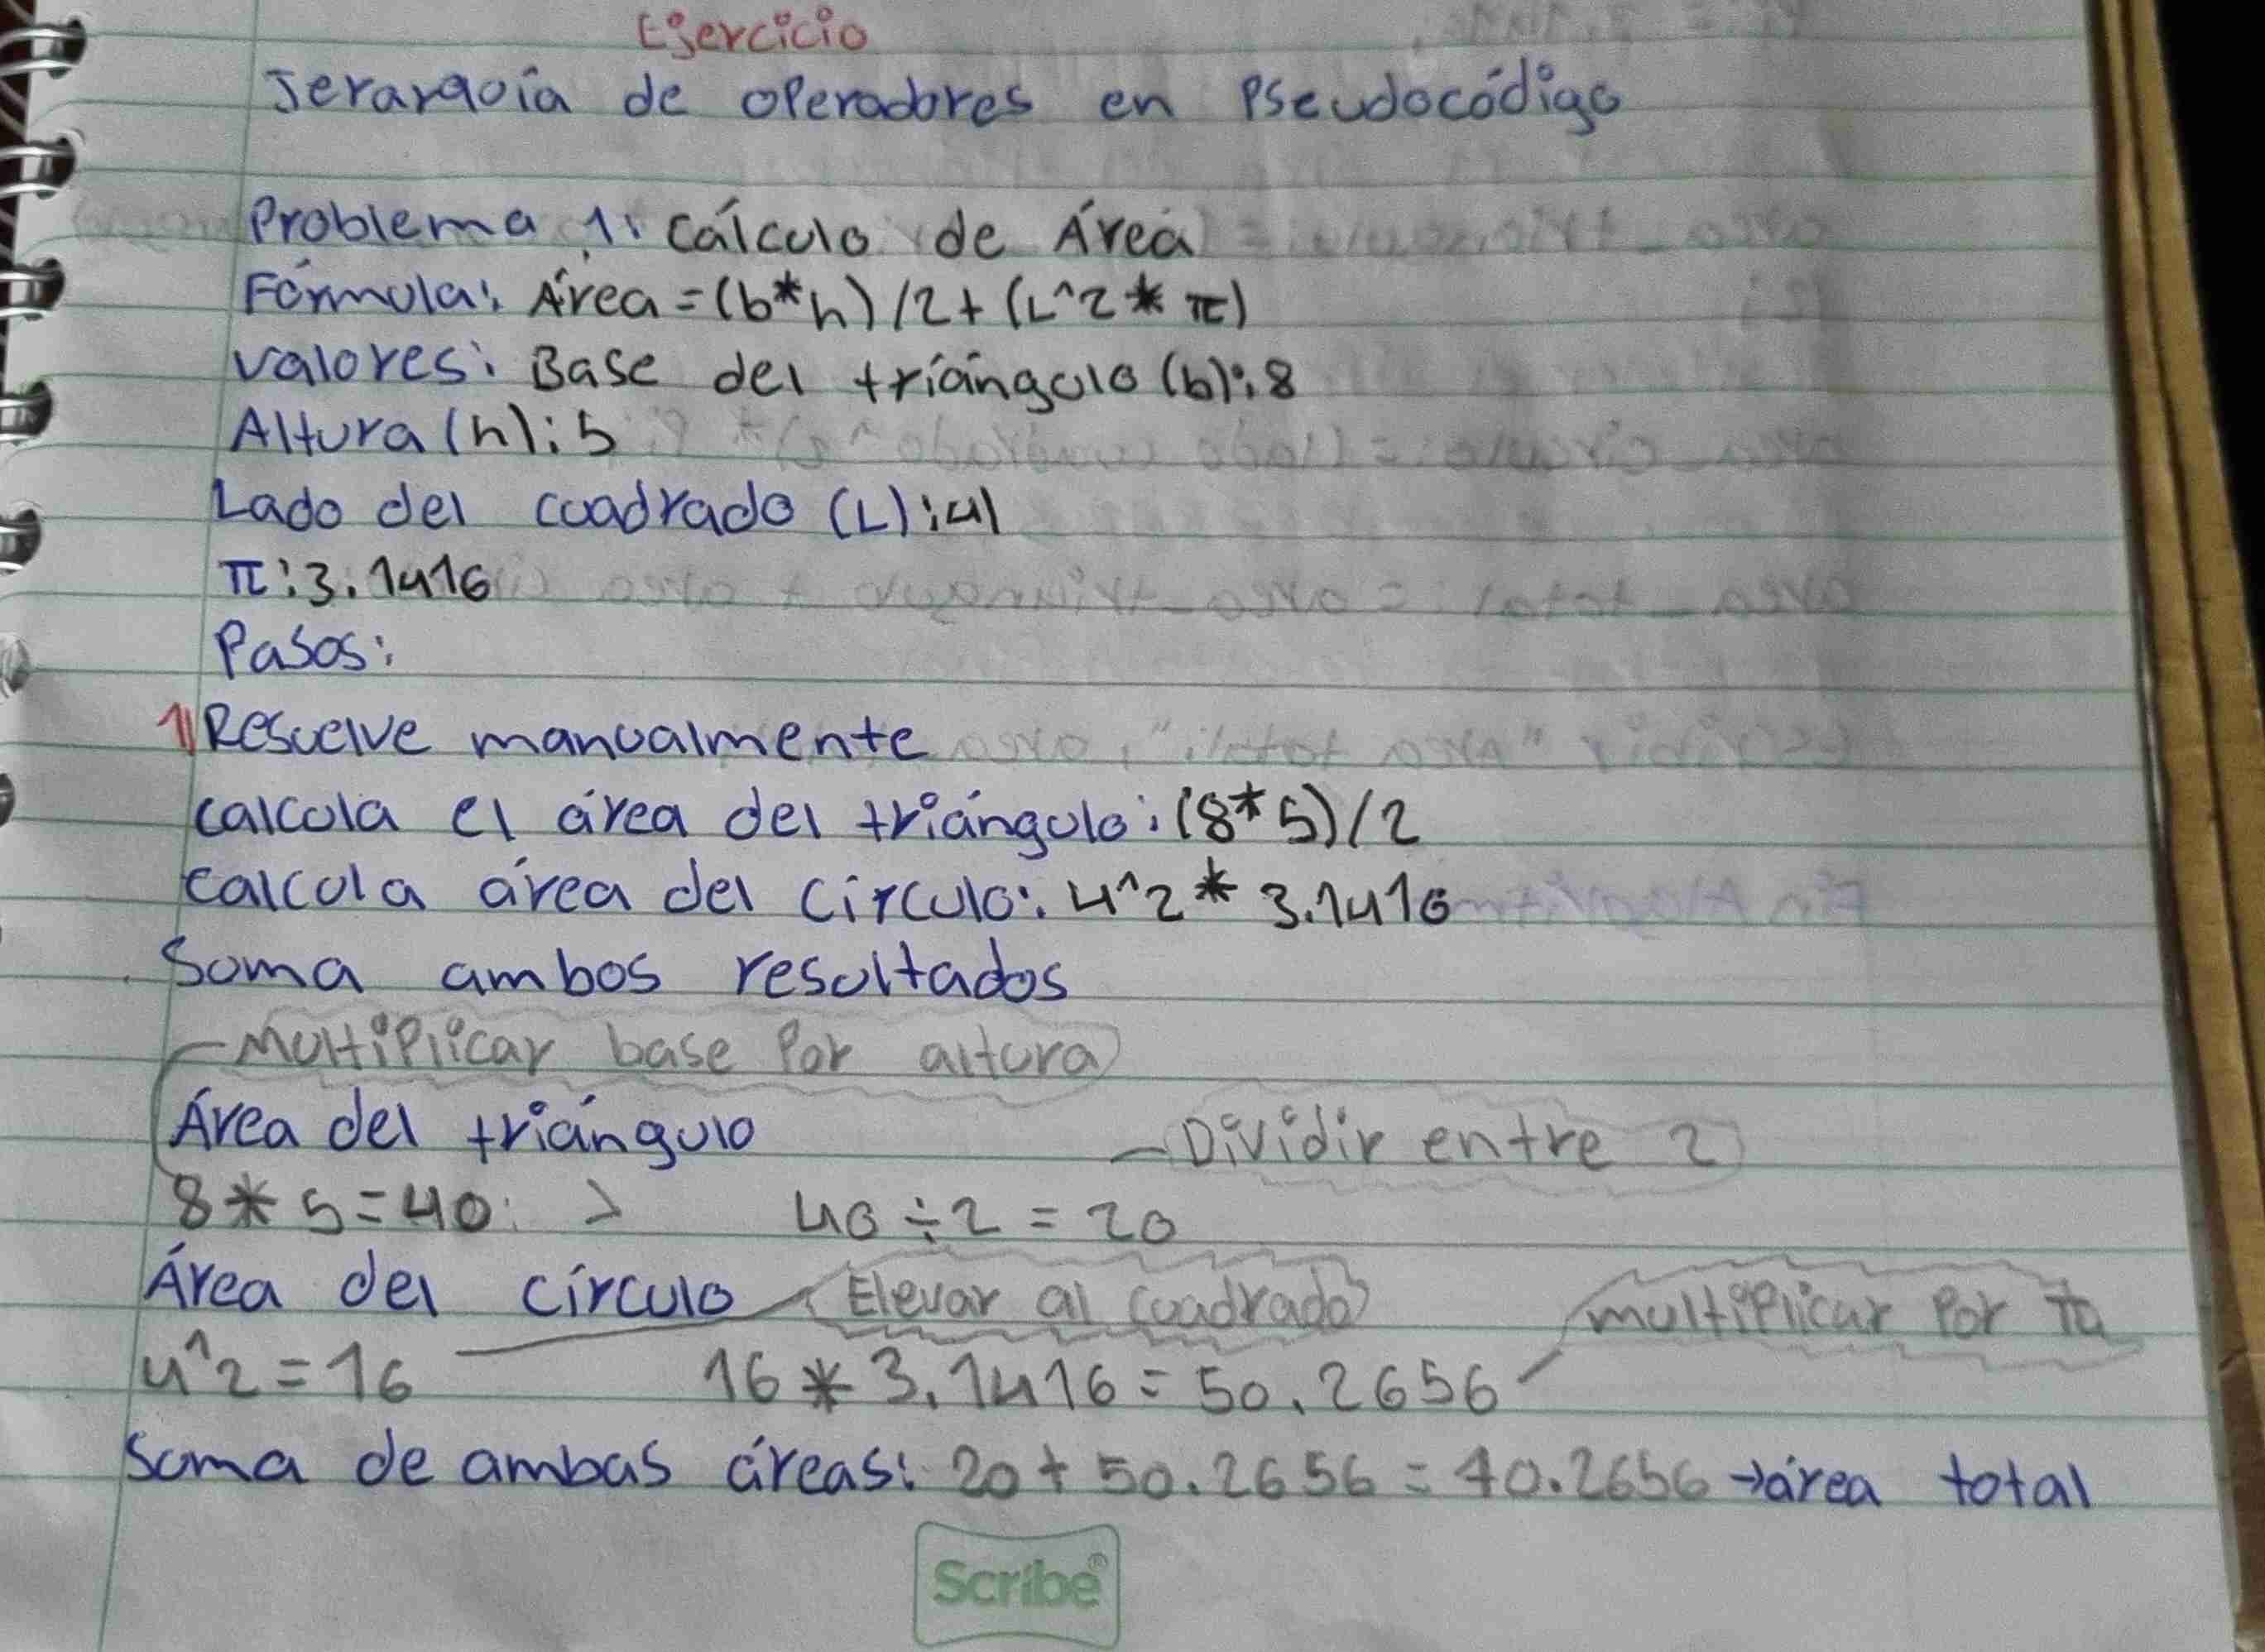 Ejercicio
Jerarquía de operadores en Pseudocódigo
Problema 1: Cálculo de Área
Fórmula: Área = (b*h) /2 + (L^2 * π)
Valores: Base del triángulo (b): 8
Altura (h): 5
Lado del cuadrado (L): 4
π: 3.1416
Pasos:
1 Resuelve manualmente
calcula el área del triángulo: (8*5)/2
calcula área del círculo: 4^2 * 3.1416
Suma ambos resultados
- Multiplicar base por altura
Área del triángulo
- Dividir entre 2
8 * 5 = 40 > 40 ÷ 2 = 20
Área del círculo Elevar al cuadrado multiplicar por
4^2 = 16 16 * 3.1416 = 50.2656
Suma de ambas áreas: 20 + 50.2656 = 70.2656 → área total
Scribe®